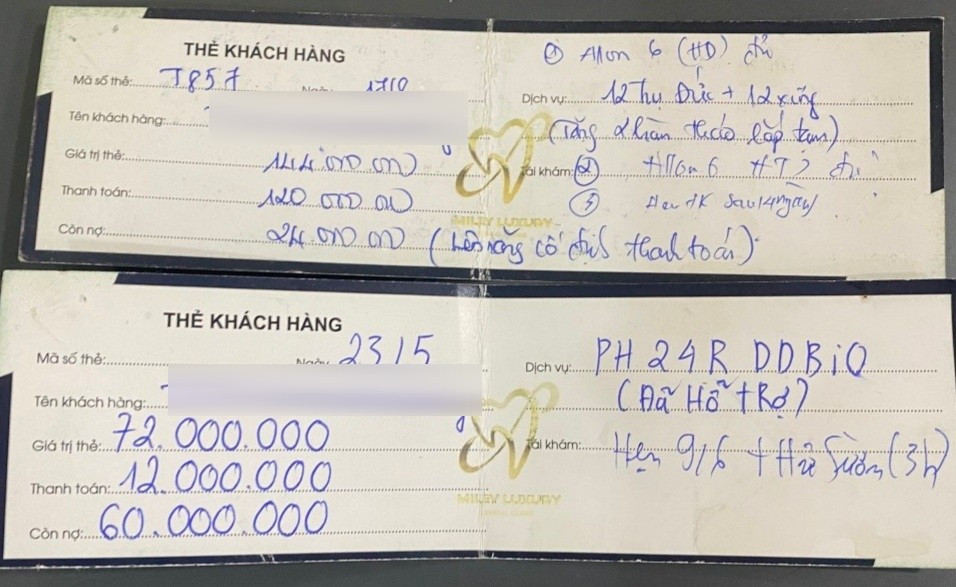 THẺ KHÁCH HÀNG
Mã số thẻ: T857
Tên khách hàng:
Giá trị thẻ: 144.000 000
Thanh toán: 120 000 000
Còn nợ: 24.000 000 (Lên răng cố định thanh toán)
① 6 (HD)
Dịch vụ: 12 Trụ Đức + 12 răng
(Tặng 2 hàm tháo lắp tạm)
Tái khám: ②
③ sau 14 ngày
MILEY LUXURY
THẺ KHÁCH HÀNG
Mã số thẻ: Ngày 23/5
Tên khách hàng:
Giá trị thẻ: 72.000.000
Thanh toán: 12.000.000
Còn nợ: 60.000.000
Dịch vụ: PH 24R DDBIO
(Đã Hỗ trợ)
Tái khám: Hẹn 9/6 + Thử Sườn (3h)
MILEY LUXURY